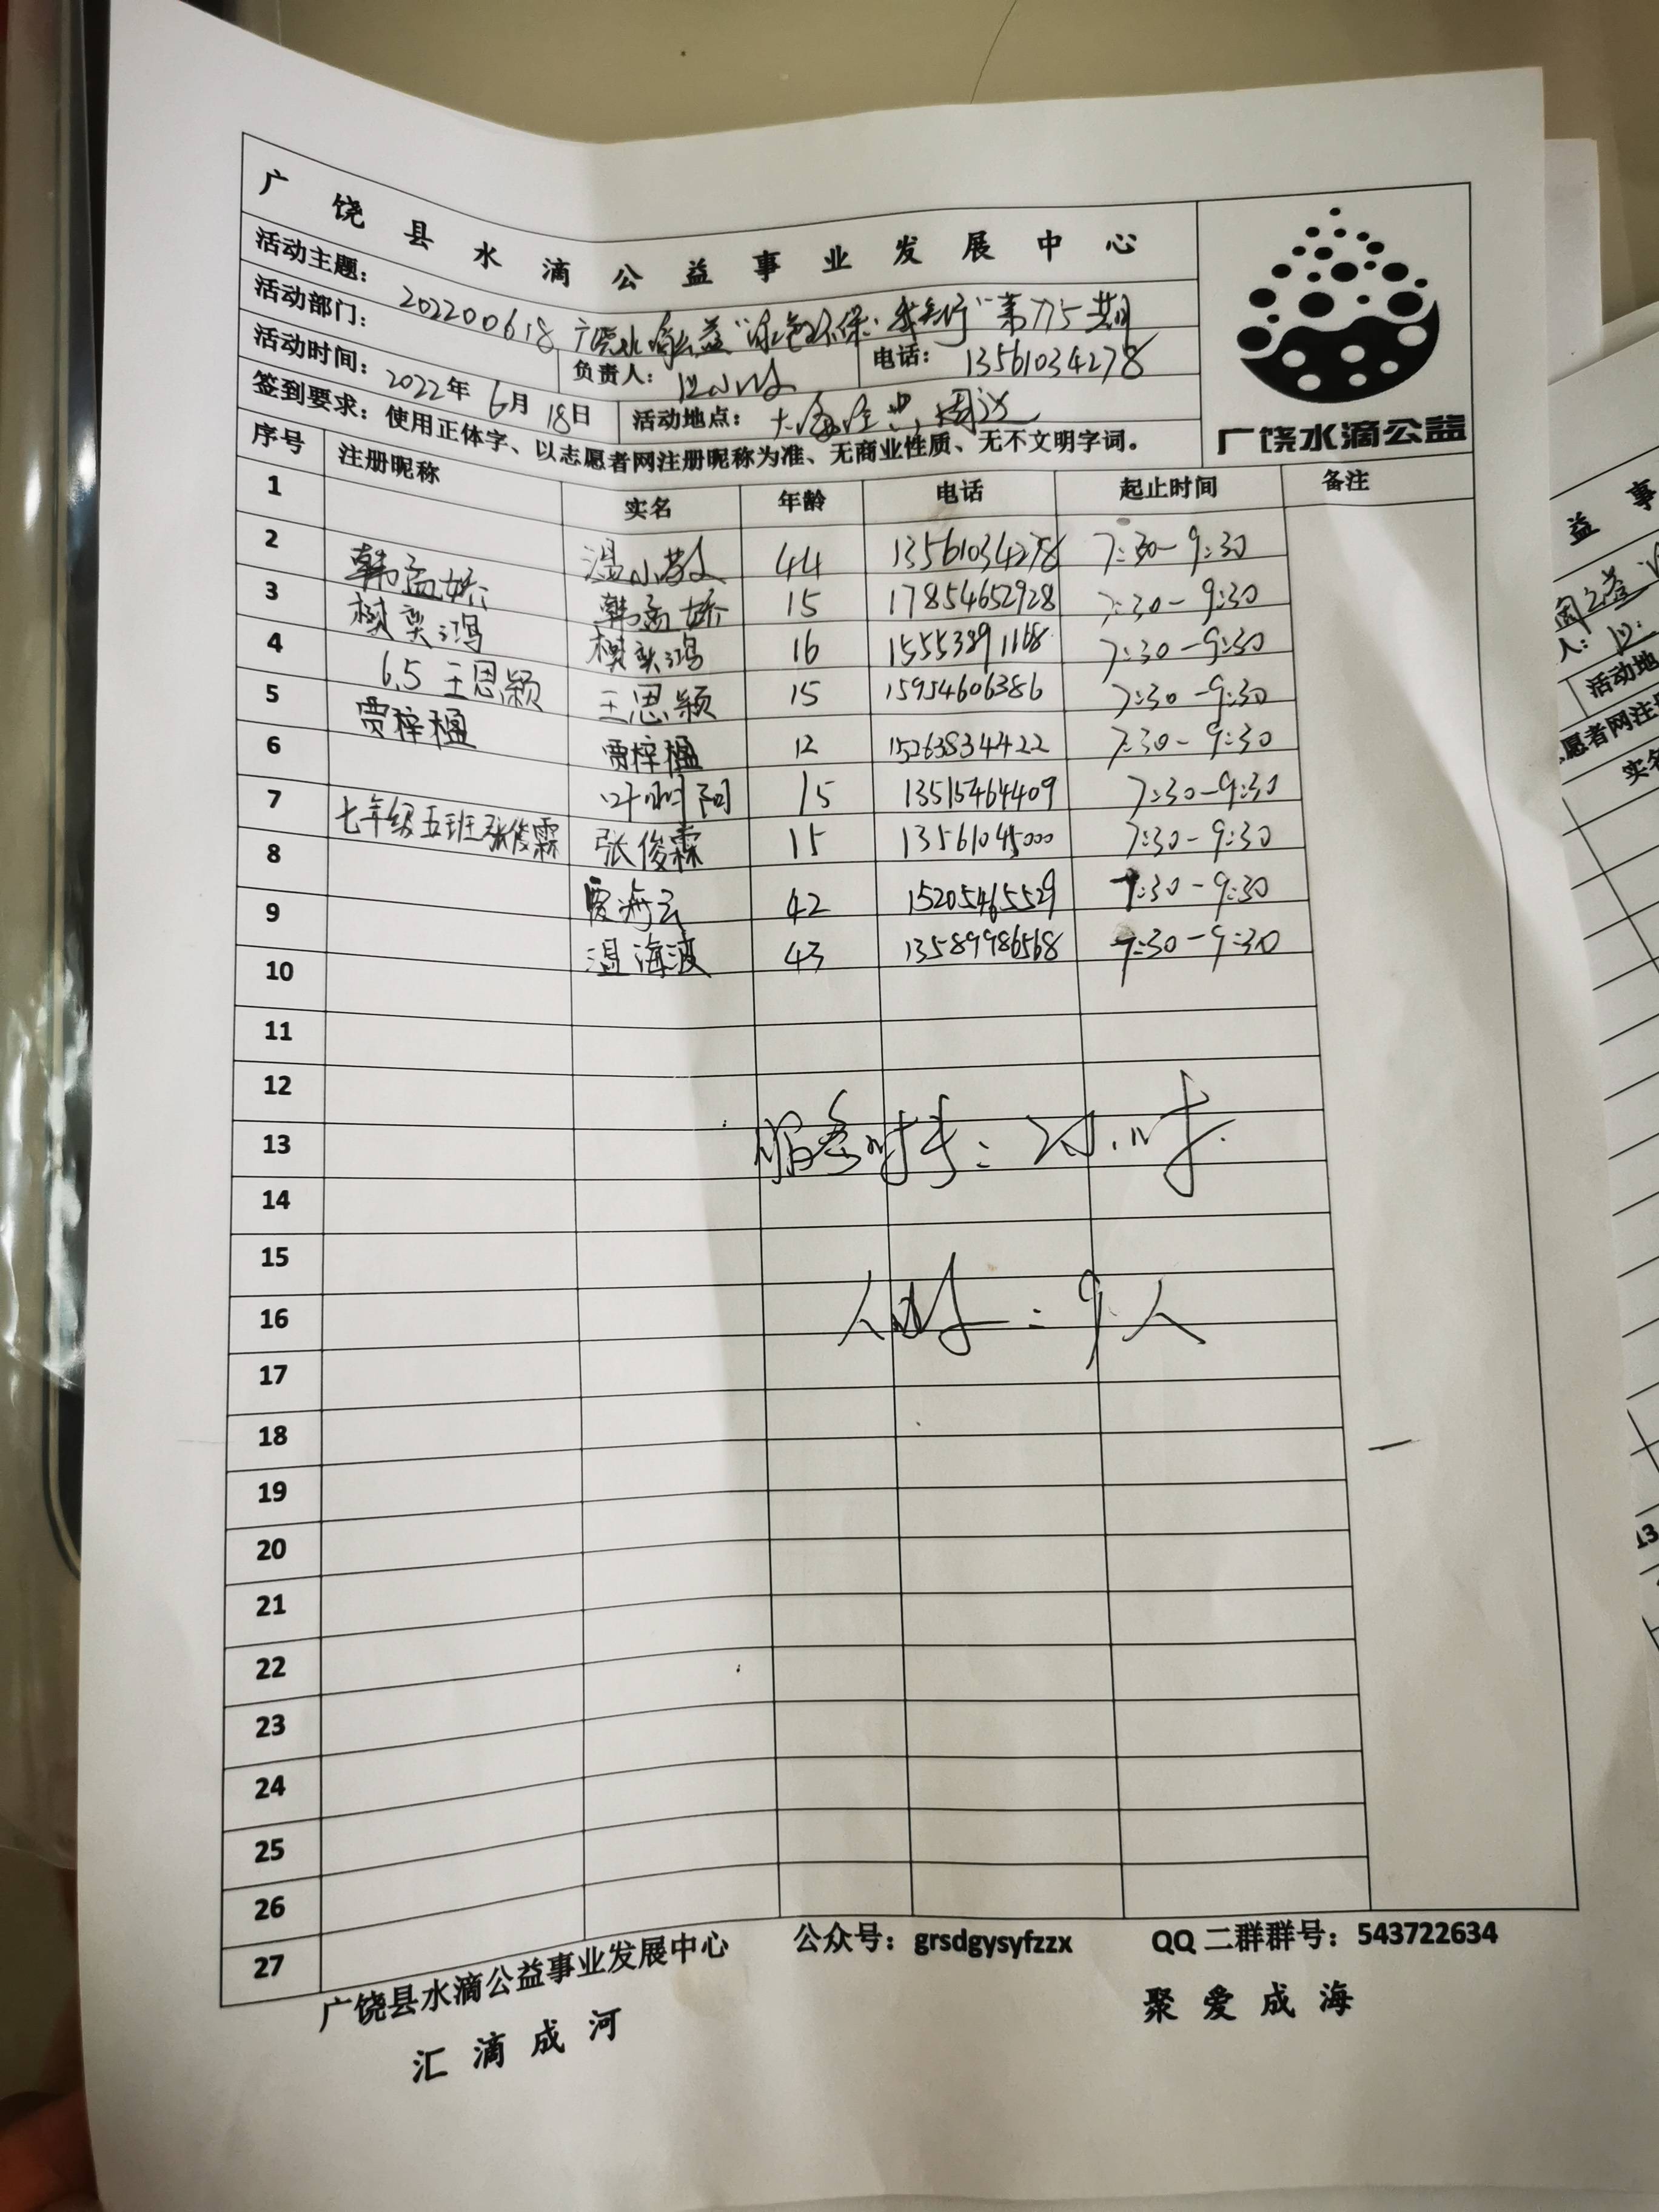 广饶县水滴公益事业发展中心
活动主题: 202200618 广饶水滴公益"绿色环保·我先行"第775期
活动部门: 负责人: 电话: 13561034278
活动时间: 2022年6月18日 活动地点: 周边
签到要求: 使用正体字、以志愿者网注册昵称为准、无商业性质、无不文明字词。
广饶水滴公益
序号 注册昵称 实名 年龄 电话 起止时间 备注
1 温小 44 13561034278 7:30-9:30
2 韩孟娇 韩孟娇 15 17854652928 7:30-9:30
3 奕鸿 奕鸿 16 15553891168 7:30-9:30
4 6.5王思颖 王思颖 15 15954606386 7:30-9:30
5 贾梓楹 贾梓楹 12 15263834422 7:30-9:30
6 15 13515464409 7:30-9:30
7 七年级五班张俊霖 张俊霖 15 13561045000 7:30-9:30
8 贾海云 42 15205465529 7:30-9:30
9 温海波 43 13589986568 7:30-9:30
10
11
12
13 服务时长: 2小时.
14
15
16 人数: 9人
17
18
19
20
21
22
23
24
25
26
27
广饶县水滴公益事业发展中心 公众号: grsdgysyfzzx QQ二群群号: 543722634
汇滴成河 聚爱成海
益事
人:
活动地
愿者网注册
实名
13